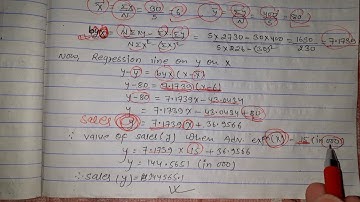 x̄ = Σx/N = 30/5 = 6 ȳ = Σy/N = 400/5 = 80
byx = NΣxy - Σx·Σy / NΣx² - (Σx)² = 5 x 2730 - 30 x 400 / 5 x 226 - (30)² = 1650 / 230 = 7.1739
Now, Regression line on y on x
y - ȳ = byx (x - x̄)
y - 80 = 7.1739 (x - 6)
y - 80 = 7.1739x - 43.0434
y = 7.1739x - 43.0434 + 80
Sales y = 7.1739x + 36.9566
∴ value of sales (y) when Adv. exp (x) = 15 (in 000)
y = 7.1739 x 15 + 36.9566
y = 144.5651 (in 000)
∴ sales (y) = 144565.1